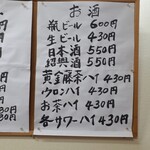 お酒
瓶ビール 600円
生ビール 430円
日本酒 550円
紹興酒 550円
黄金藤茶ハイ 430円
ウロンハイ 430円
お茶ハイ 430円
各サワーハイ 430円